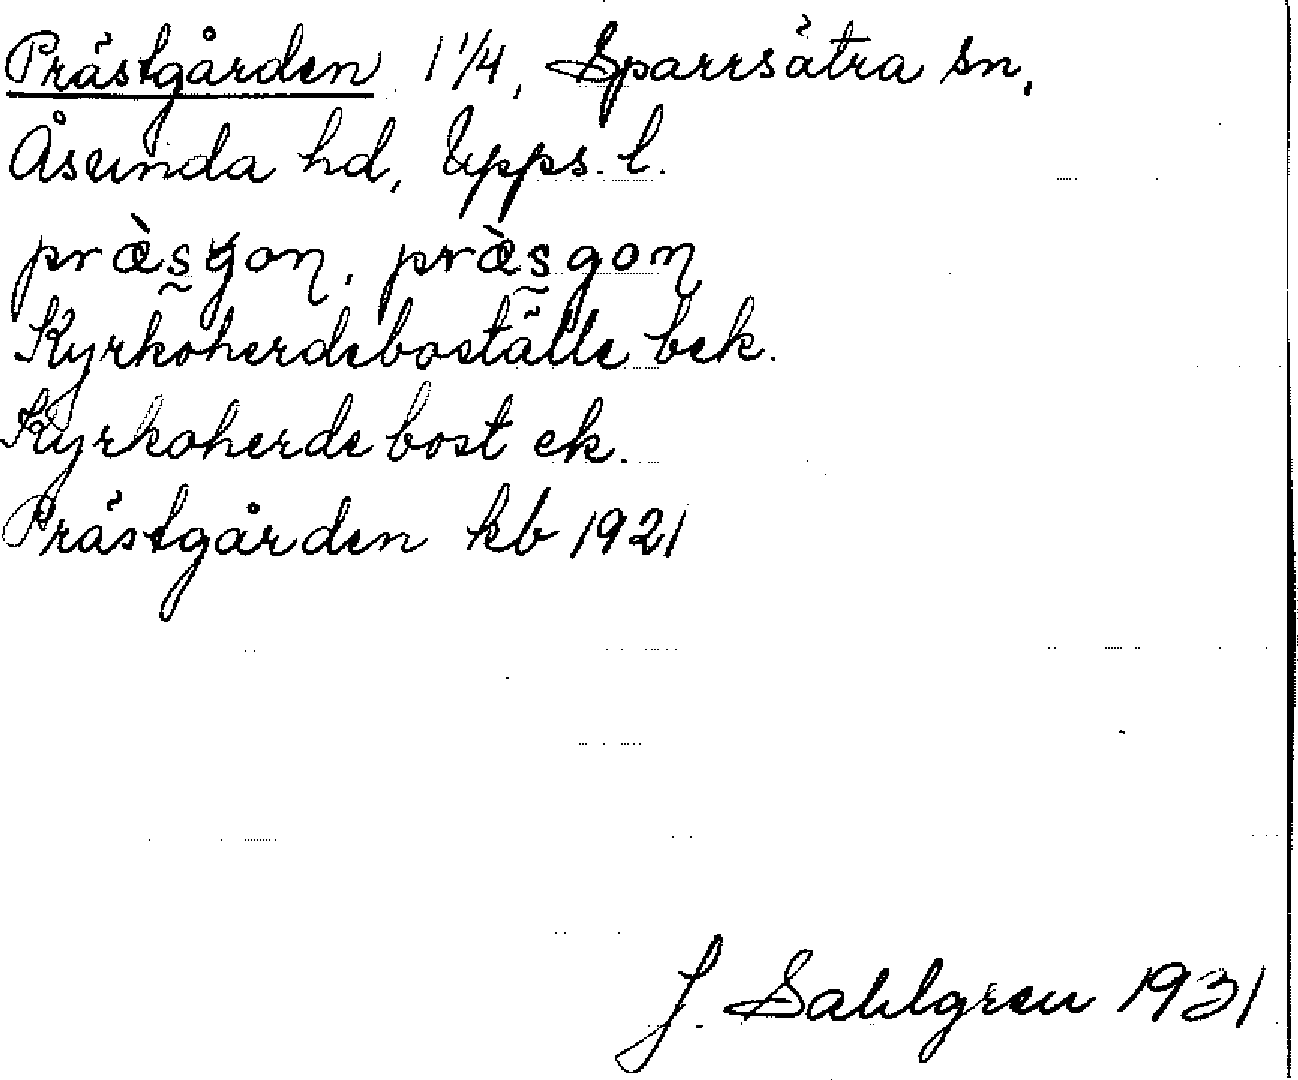 Prästgården 1 1/4, Sparrsätra sn,
Åsunda hd, Upps. l.
præ̀s̰gon, præ̀s̰gon
Kyrkoherdeboställe bek.
Kyrkoherdebost ek.
Prästgården kb 1921
J. Sahlgren 1931